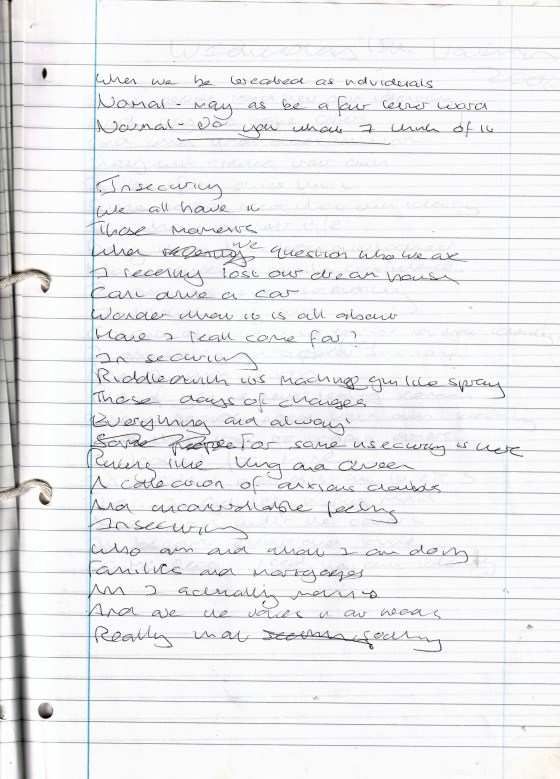 When we be treated as individuals
Normal - may as be a four letter word
Normal - Do you know I think of it
Insecurity
We all have it
Those moments
When we question who we are
I recently lost our dream house
Cant drive a car
Wonder what it is all about
Have I really come far?
In security
Riddle with its machine gun like spray
Those days of changes
Everything and always
For some insecurity is here
Ruling like King and Queen
A collection of anxious doubts
And uncontrollable feeling
Insecurity
Who am and what I am doing
Families and mortgages
Am I actually
And are the voices in our heads
Really that